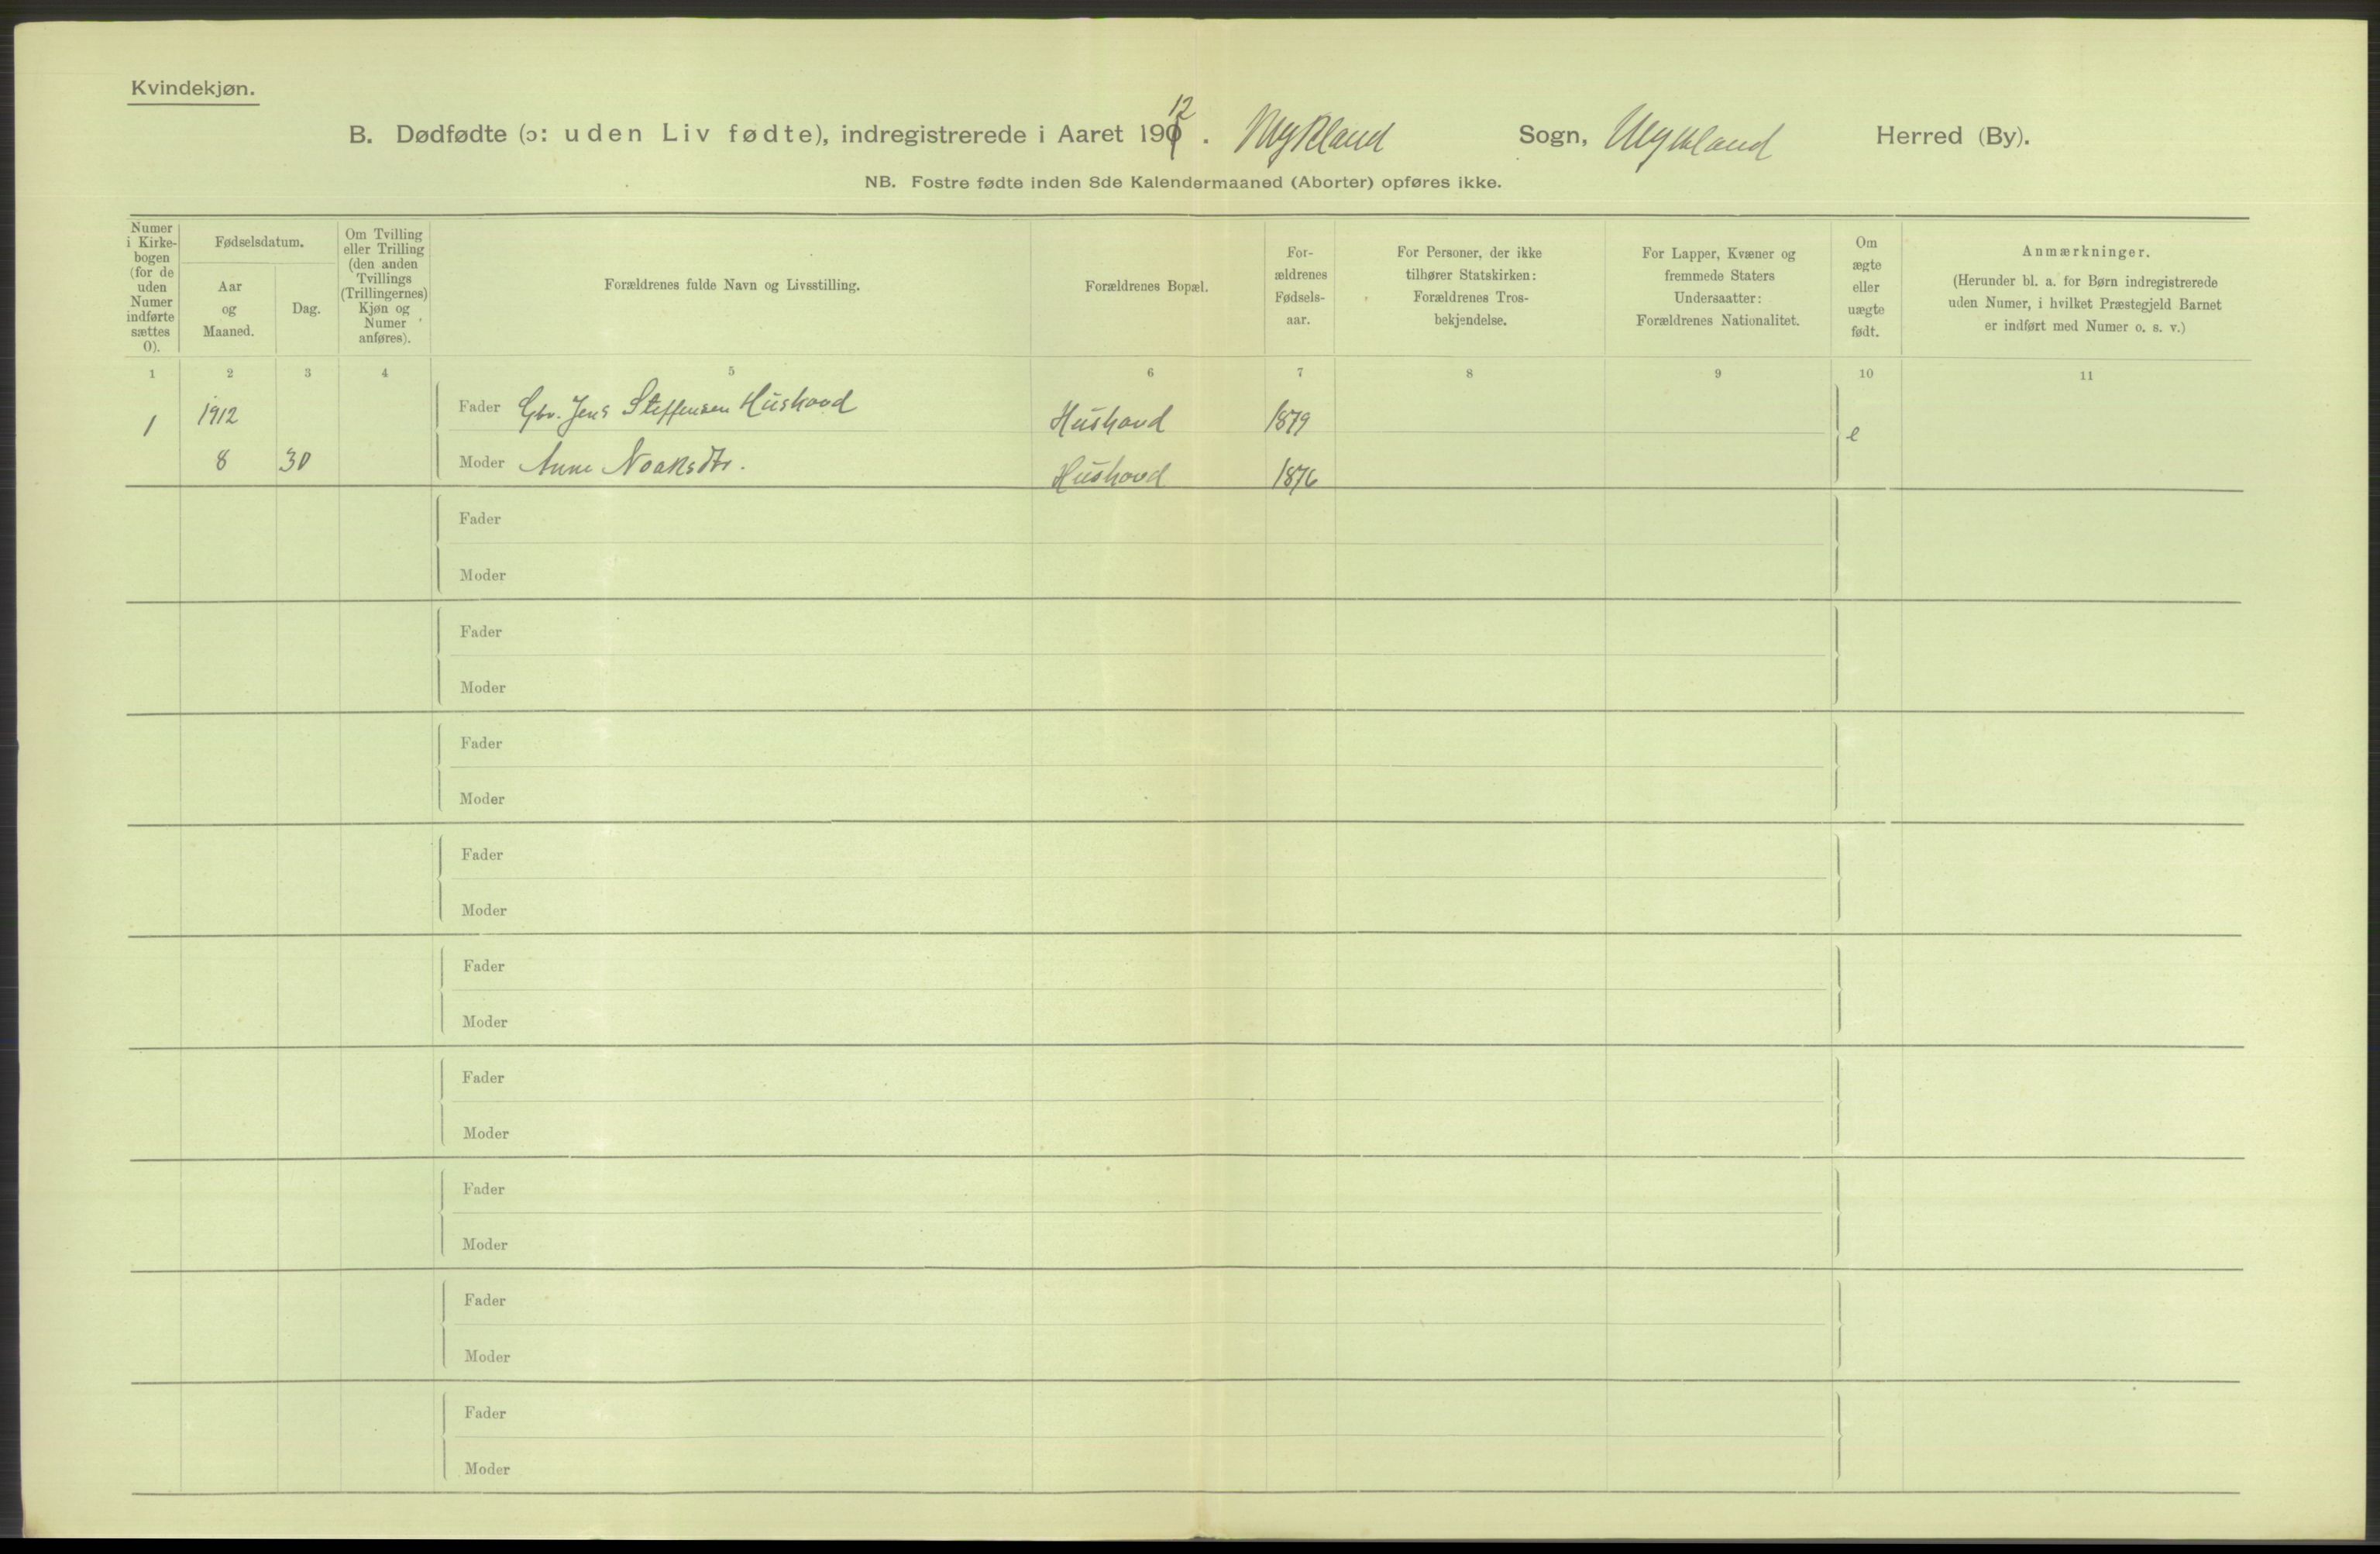 Kvindekjøn.
B. Dødfødte (ɔ: uden Liv fødte), indregistrerede i Aaret 1912. Mykland Sogn, Mykland Herred (By).
NB. Fostre fødte inden 8de Kalendermaaned (Aborter) opføres ikke.
Numer i Kirke-bogen (for de uden Numer indførte sættes 0).
Fødselsdatum.
Aar og Maaned.
Dag.
Om Tvilling eller Trilling (den anden Tvillings (Trillingernes) Kjøn og Numer anføres).
Forældrenes fulde Navn og Livsstilling.
Forældrenes Bopæl.
For-ældrenes Fødsels-aar.
For Personer, der ikke tilhører Statskirken: Forældrenes Tros-bekjendelse.
For Lapper, Kvæner og fremmede Staters Undersaatter: Forældrenes Nationalitet.
Om ægte eller uægte født.
Anmærkninger.
(Herunder bl. a. for Børn indregistrerede uden Numer, i hvilket Præstegjeld Barnet er indført med Numer o. s. v.)
1 2 3 4 5 6 7 8 9 10 11
1 1912 Fader Gbr. Jens Steffensen Hushovd Hushovd 1879 e
8 30 Moder Anne Noaksdtr. Hushovd 1876
Fader
Moder
Fader
Moder
Fader
Moder
Fader
Moder
Fader
Moder
Fader
Moder
Fader
Moder
Fader
Moder
Fader
Moder